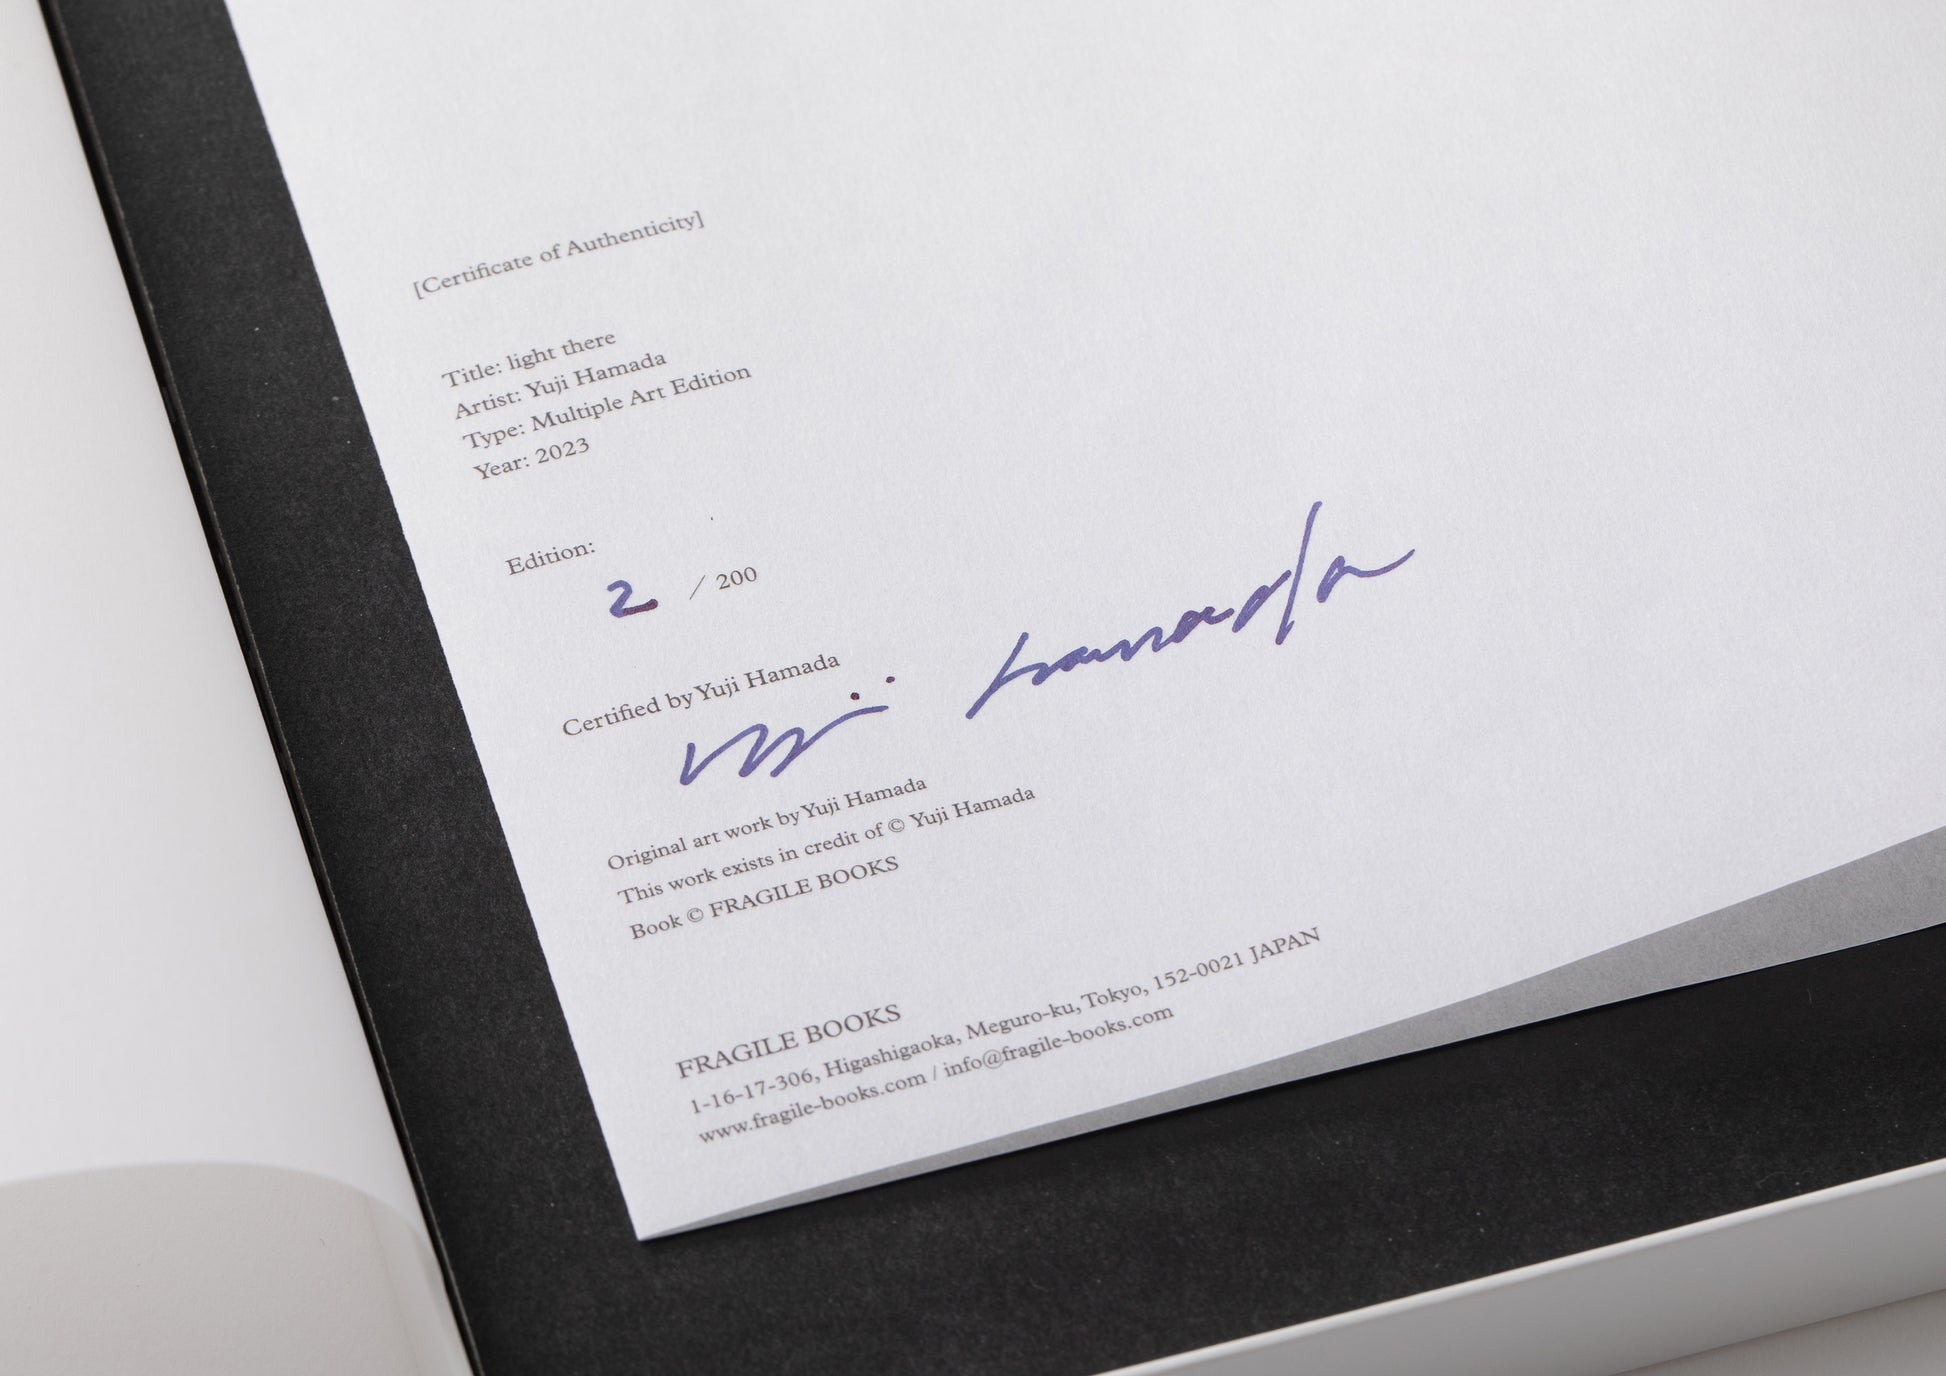 [Certificate of Authenticity]
Title: light there
Artist: Yuji Hamada
Type: Multiple Art Edition
Year: 2023
Edition:
2 / 200
Certified by Yuji Hamada
Yuji Hamada
Original art work by Yuji Hamada
This work exists in credit of © Yuji Hamada
Book © FRAGILE BOOKS
FRAGILE BOOKS
1-16-17-306, Higashigaoka, Meguro-ku, Tokyo, 152-0021 JAPAN
www.fragile-books.com / info@fragile-books.com